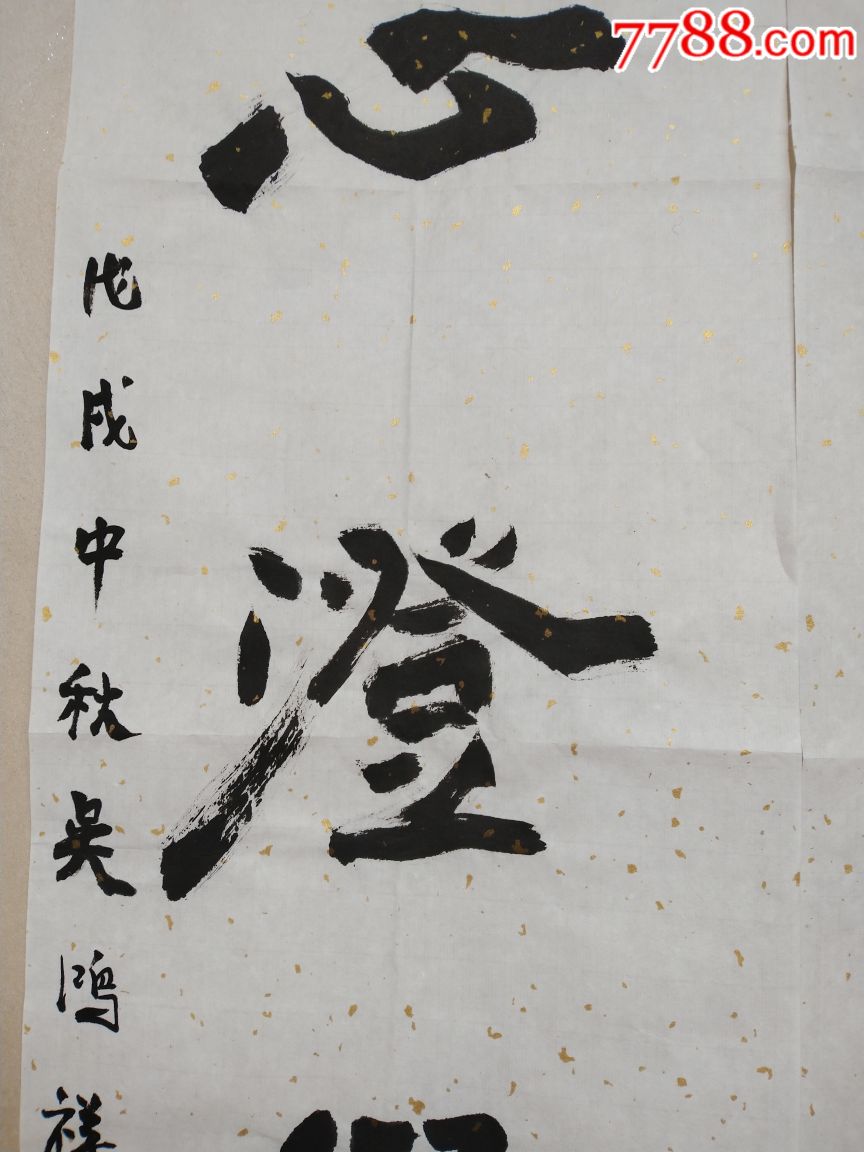 7788.com
心澄
戊戌中秋吴鸿祥